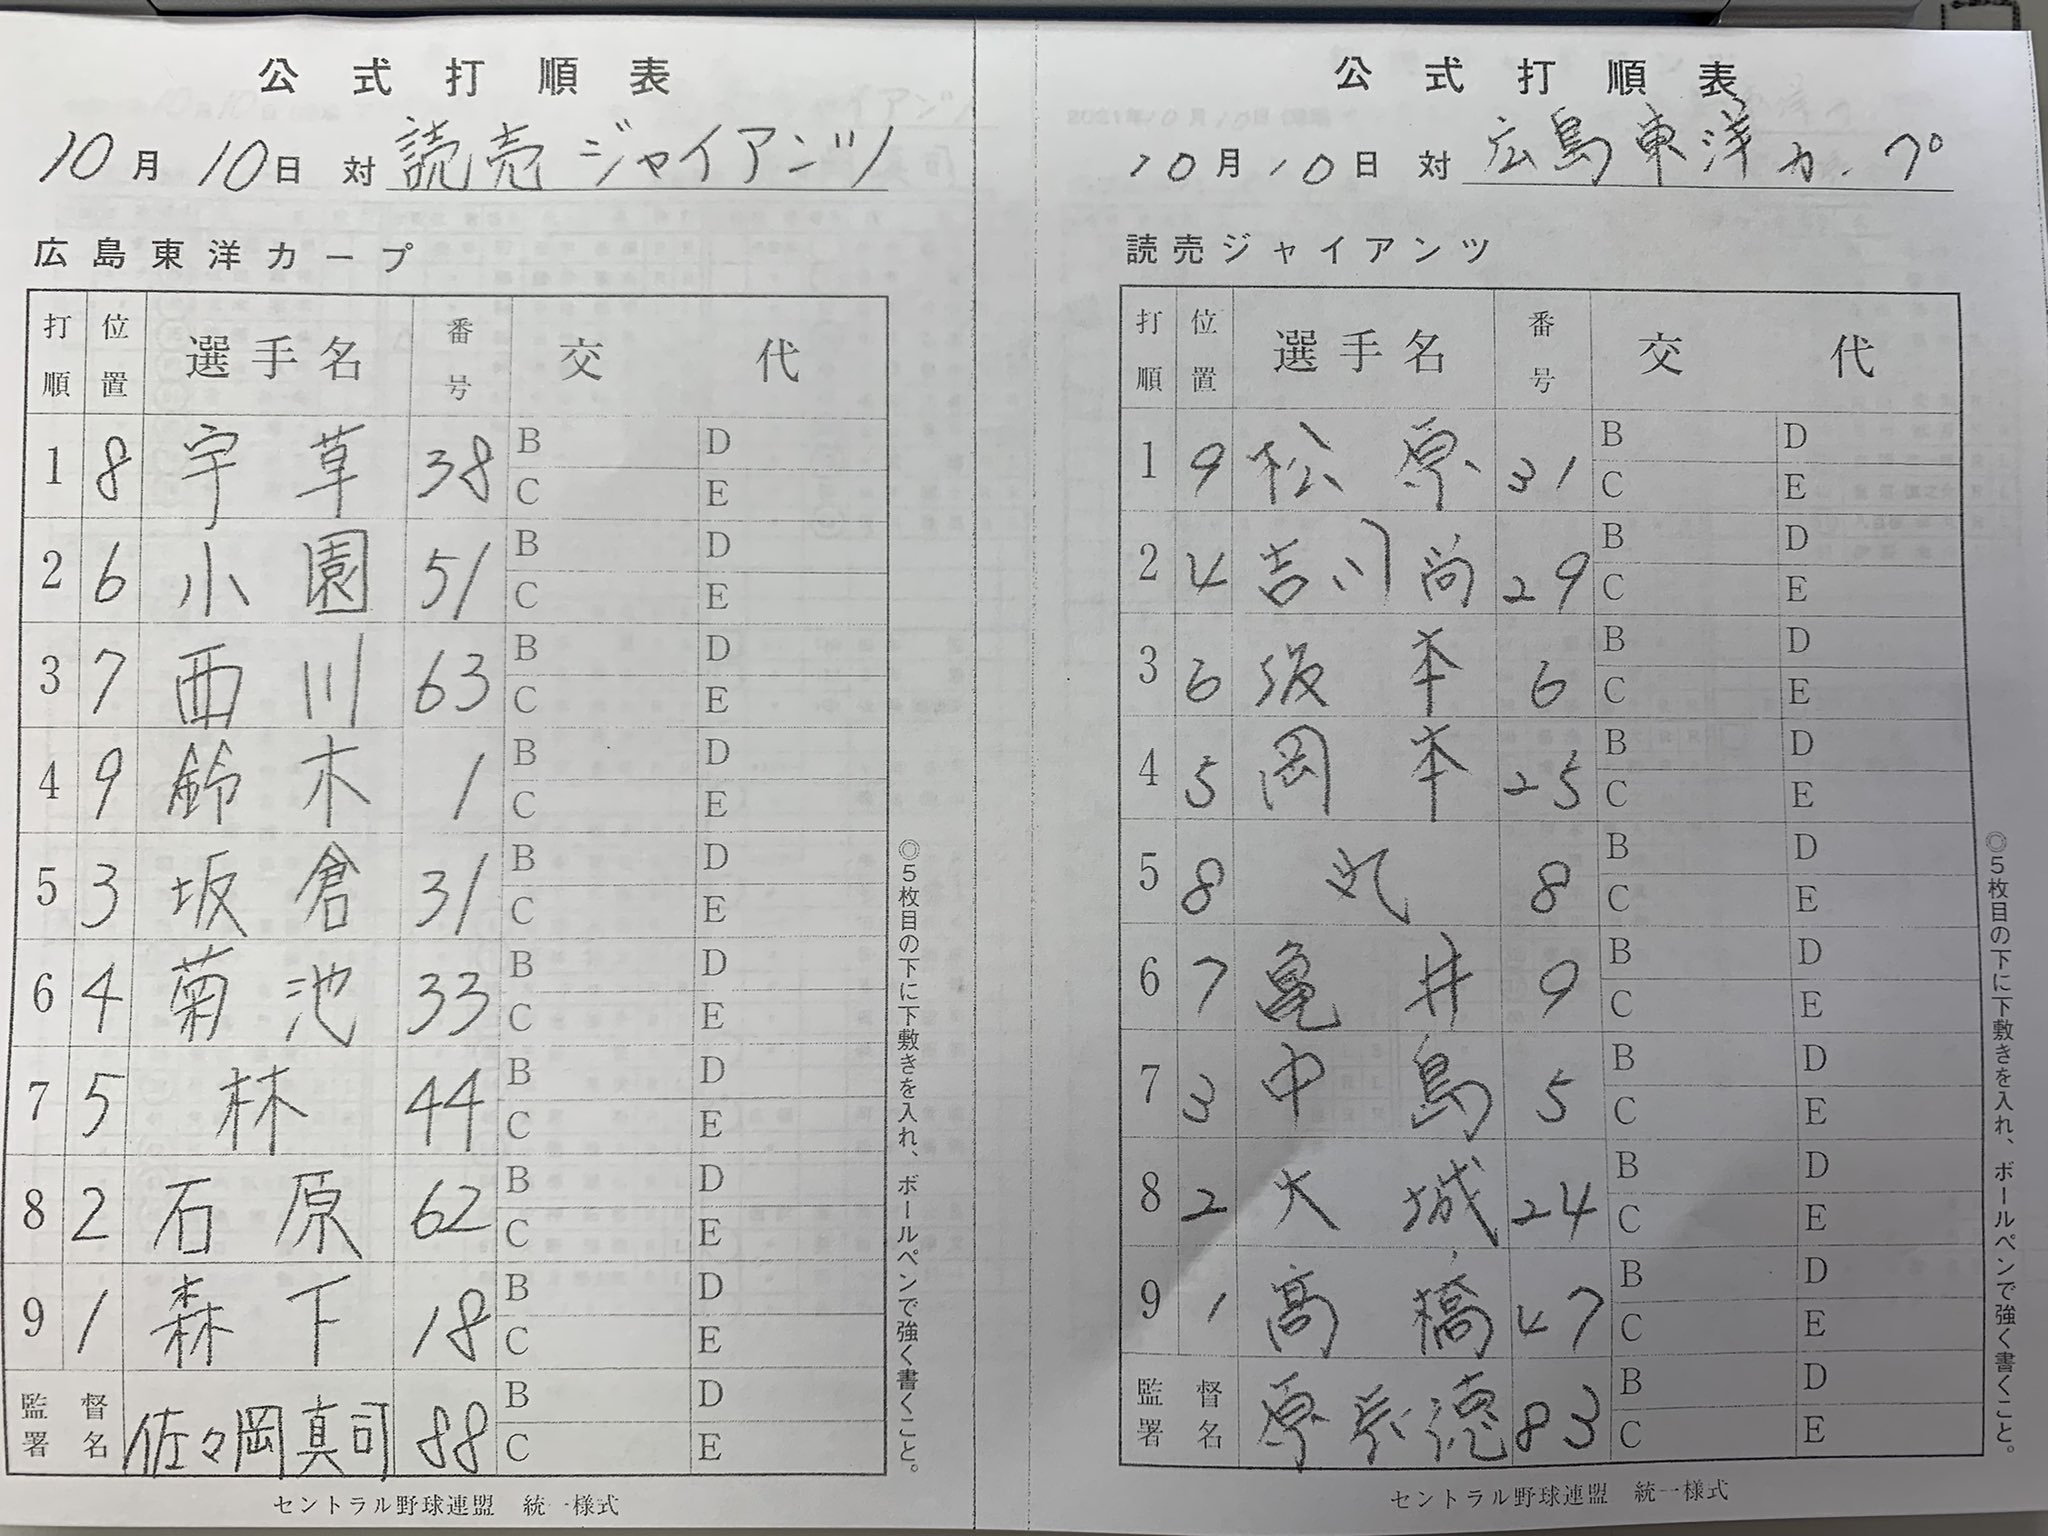 公式打順表
10月10日 対 読売ジャイアンツ
広島東洋カープ
打順 位置 選手名 番号 交代
1 8 宇草 38 B D
C E
2 6 小園 51 B D
C E
3 7 西川 63 B D
C E
4 9 鈴木 1 B D
C E
5 3 坂倉 31 B D
C E
6 4 菊池 33 B D
C E
7 5 林 44 B D
C E
8 2 石原 62 B D
C E
9 1 森下 18 B D
C E
監督署名 佐々岡真司 88 B D
C E
◎5枚目の下に下敷きを入れ、ボールペンで強く書くこと。
セントラル野球連盟 統一様式
公式打順表
10月10日 対 広島東洋カープ
読売ジャイアンツ
打順 位置 選手名 番号 交代
1 9 松原 31 B D
C E
2 4 吉川尚 29 B D
C E
3 6 坂本 6 B D
C E
4 5 岡本 25 B D
C E
5 8 丸 8 B D
C E
6 7 亀井 9 B D
C E
7 3 中島 5 B D
C E
8 2 大城 24 B D
C E
9 1 高橋 47 B D
C E
監督署名 原辰徳 83 B D
C E
◎5枚目の下に下敷きを入れ、ボールペンで強く書くこと。
セントラル野球連盟 統一様式